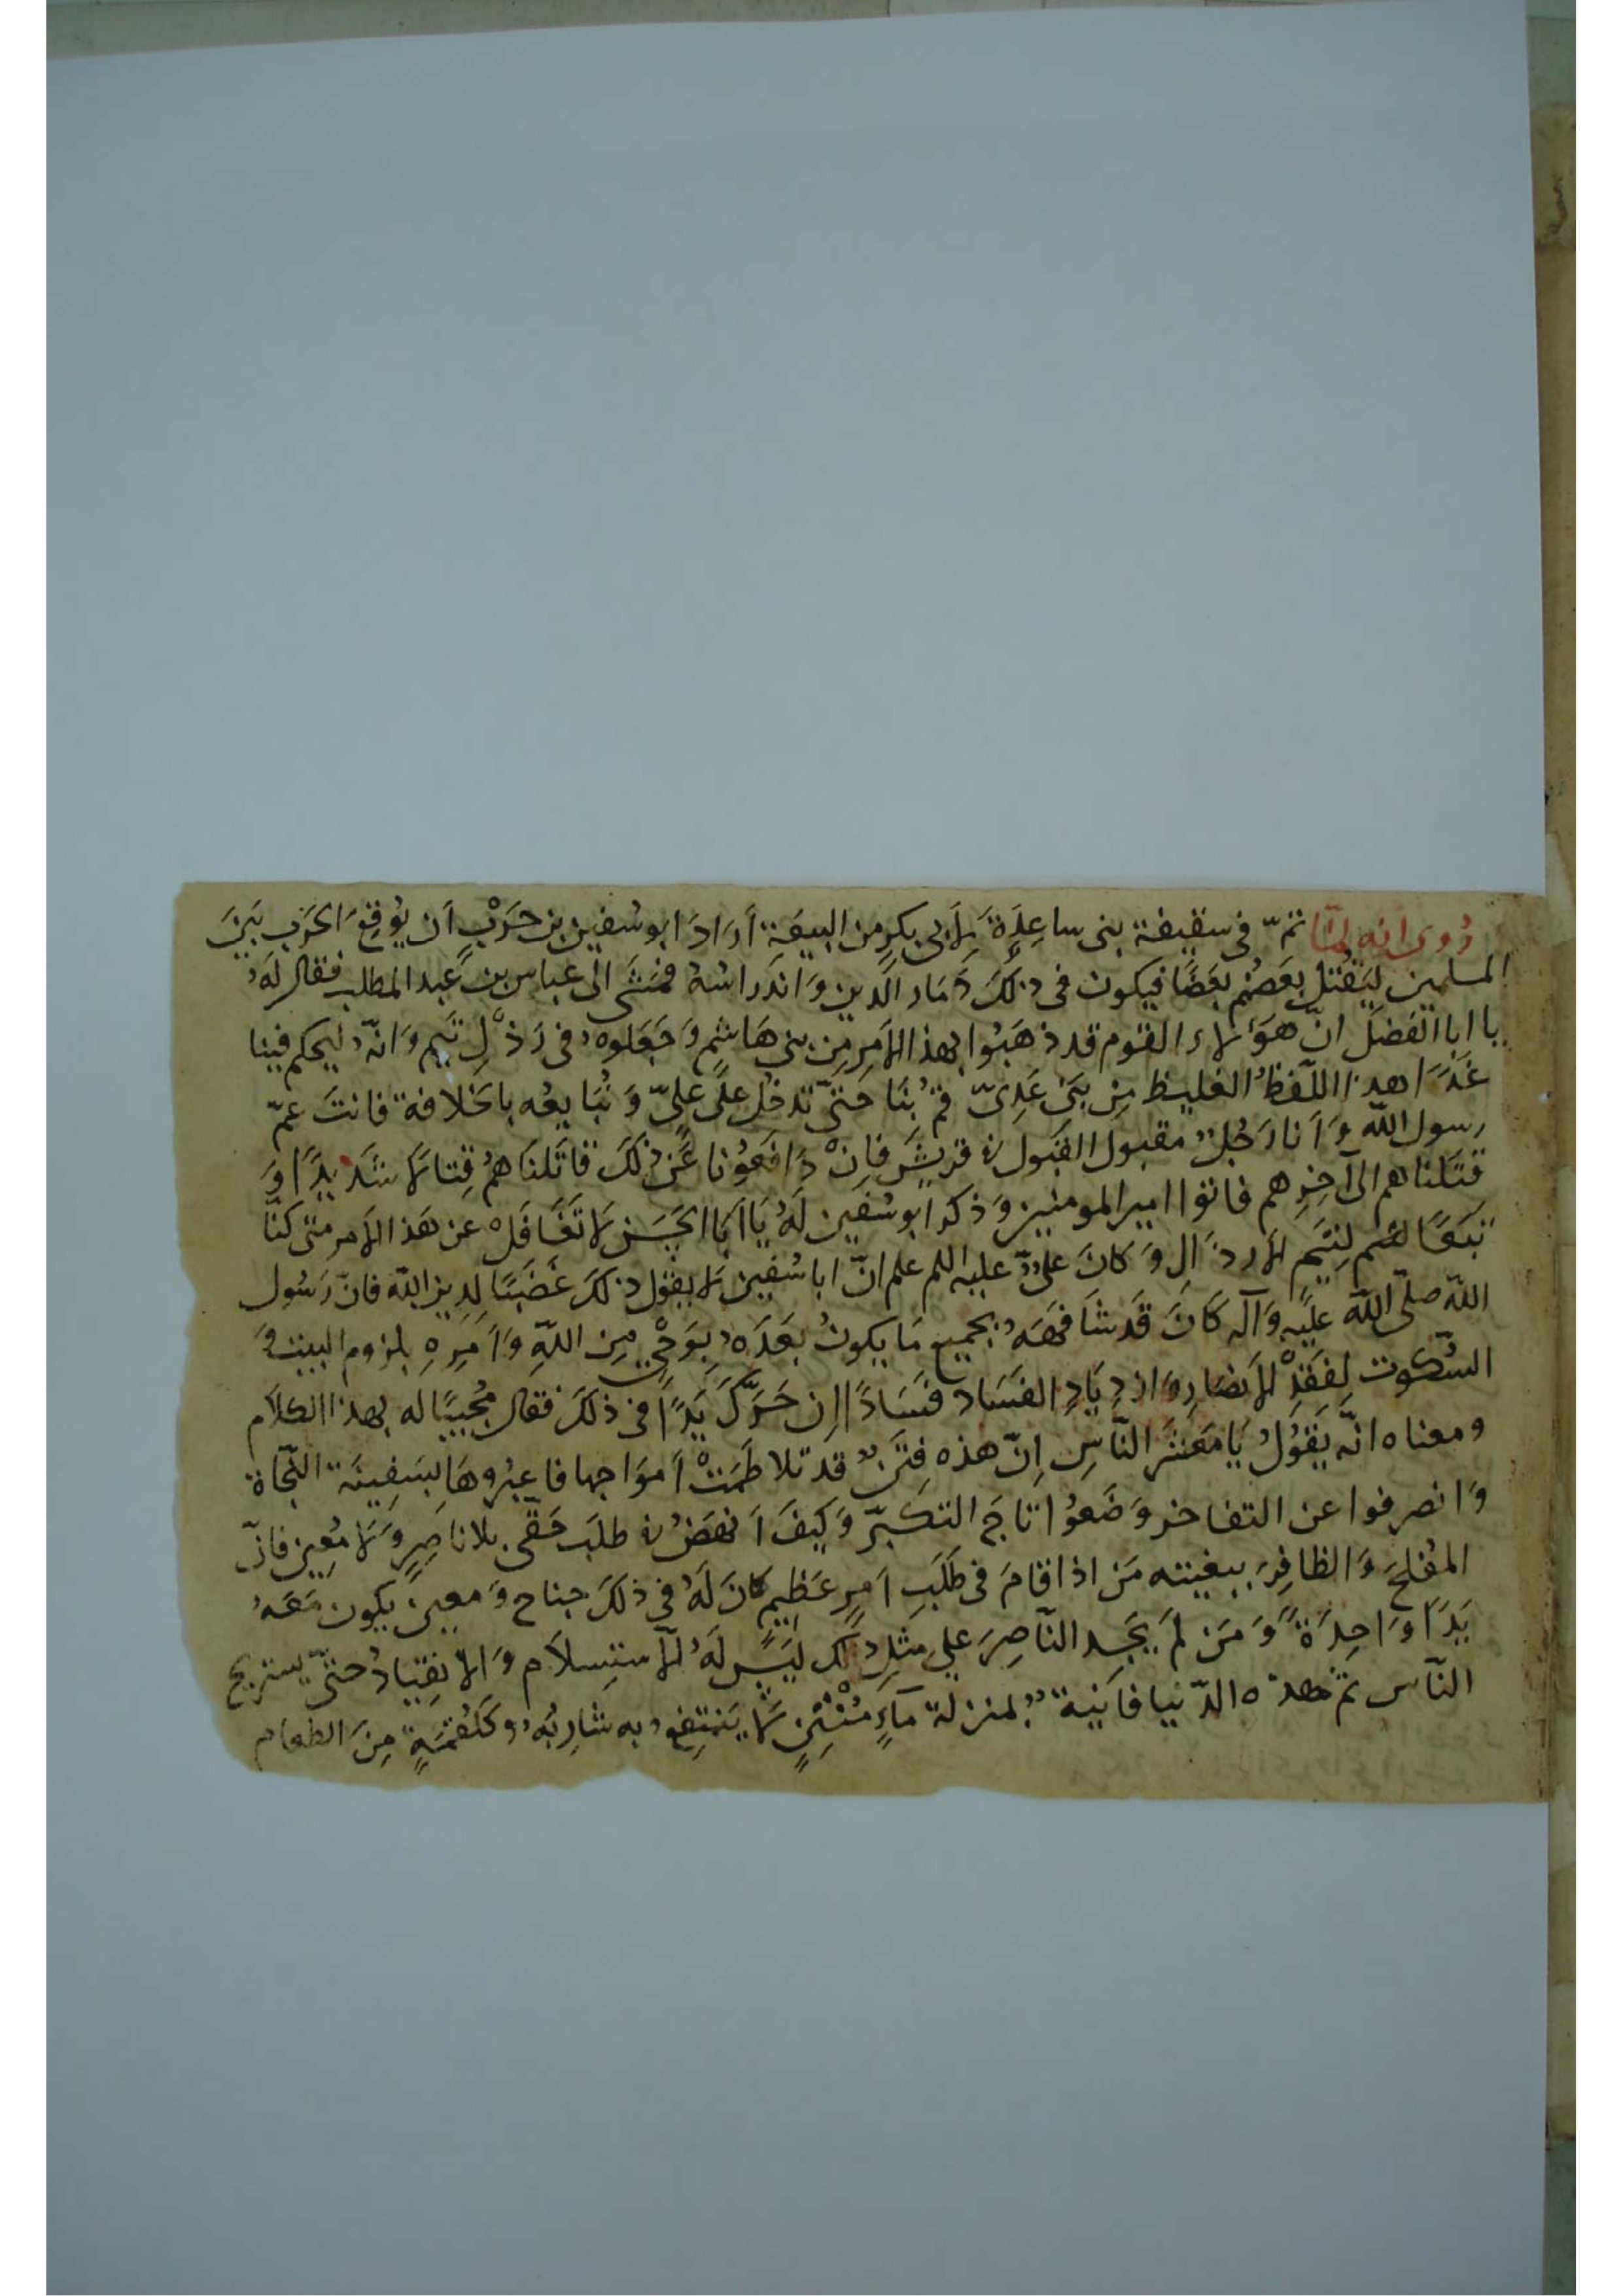 رُوِىَ انه لمّا تمّ فى سقيفة بنى ساعِدَةَ لِأَبى بكرٍ من البيعَة أَرَادَ ابو سُفين بن حَرْبٍ اَن يُوقِعَ الحَربَ بَينَ
المسلمين لِيَقتُلَ بعَضهُم بعَضًا فيكون فى ذلِكَ دَمَار الدّين وَ اندراسُهُ فمَشَى الى عباس بن عبد المطلب فقال لَهُ
يا ابا الفَضلَ انّ هَؤلاء القوم قد ذهَبُوا بهذا الاَمرِ مِن بنى هَاشم وَ جَعَلوهُ فى رَذْلِ تَيم وَ انّهُ ليحكم فينا
غَدًا هذا اللّفظُ الغليظ مِن بَنى عَدِىّ قُم بُنَا حَتّى تدخُل على علِىّ وَ نُبَايعُه باخلافة فانتَ عَمّ
رسول الله وَ اَنا رَجُلٌ مقبول القبول فى قريش فاِنْ دَافعُونا عَن ذلكَ قاتَلناهُم قِتالا شَدِيدًا وَ
قتَلناهم الى آخِرِهم فاتوا امير المومنين وَ ذكر ابو سُفين لَهُ يَا اَبَا الحَسَن لا تَغَافَلْ عن هَذ الاَمر متى كنّا
تبَعًا لتَيم الارذال وَ كانَ علىٌّ عليه اللم علم انّ ابا سُفين لا يقُول ذلكَ غَضَبًا لِدين الله فانّ رَسُول
الله صلّى الله علَيه وَ آله كَانَ قَد شافَهَهُ بجميع مَا يكونُ بَعدَهُ بِوَحْىٍ مِن اللهِ وَ اَمَرَهِ بلزوم البيت وَ
السُّكوت لِفَقْدِ الاَنصَار وَ ازدِيَادِ الفَسَاد فسَادًا اِن حَرَّكَ يَدًا فى ذلكَ فقال مُجيبًا له بهذا الكلام
ومعناه انّه يَقوُلُ يَا مَعشَرَ النّاسِ اِنّ هذه فِتَنٌ قد تلاطَمَتْ اَموَاجها فاعبُروهَا بسَفِينَة النّجاة
وَ انصرفوا عن التفاخر وَضَعُوا تاجَ التكبّر وَ كيفَ اَنهَضُ فى طلَب حَقّى بلا ناصِرٍ وَ لا مُعِين فانّ
المفلحَ وَ الظافِرَ ببغيته مَن اذا قامَ فى طَلَبِ اَمرٍ عَظِيمٍ كانَ لَهُ فى ذلكَ جناح وَ معين يكون مَعَهُ
يَدًا وَاحِدَةً وَ مَن لَم يَجد النّاصِرَ على مثلِ ذلك ليَسَ لَهُ الّا الاستسلام وَ الاِنقِيَادُ حتّى يستريح
النّاس ثمّ هذه الدّنيا فانِيَة بمنزلة مآءٍ مُنْتِنٍ لا يَنتفِعُ به شاربُهُ وَ كلُقمَةٍ مِنَ الطعام